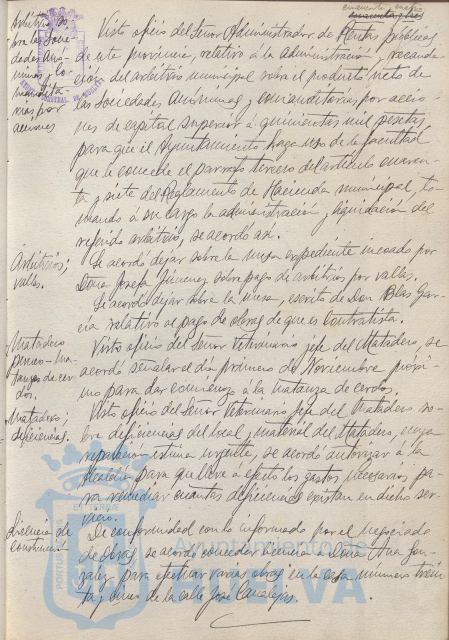 cincuenta y cuatro
cincuenta y tres
Arbitrios so-
bre las Socie-
dades Anó-
nimas y co-
mandita-
rias por
acciones
Visto oficio del Señor Administrador de Rentas públicas
de esta provincia, relativo á la administración y recauda-
ción del arbitrio municipal sobre el producto neto de
las Sociedades Anónimas y comanditarias por accio-
nes de capital superior á quinientas mil pesetas
para que el Ayuntamiento haga uso de la facultad
que le concede el parrafo tercero del artículo cuaren-
ta y siete del Reglamento de Hacienda municipal, to-
mando á su cargo la administración y liquidación del
referido arbitrio, se acordó así.
Arbitrios;
vallas.
Se acordó dejar sobre la mesa expediente incoado por
Doña Josefa Jimenez sobre pago de arbitrios por vallas.
Se acordó dejar sobre la mesa, escrito de Don Blas Gar-
cía relativo al pago de obras de que es contratista.
Matadero
Ma-
tanza de cer-
dos.
Visto oficio del Señor Veterinario jefe del Matadero, se
acordó señalar el día primero de Noviembre próxi-
mo para dar comienzo á la matanza de cerdos.
Matadero;
deficiencias.
Visto oficio del Señor Veterinario jefe del Matadero so-
bre deficiencias del local y material del Matadero, cuya
reparación estima urgente, se acordó autorizar á la
Alcaldía para que lleve á efecto los gastos necesarios pa-
ra remediar cuantas deficiencias existan en dicho ser-
vicio.
Licencia de
construcción
De conformidad con lo informado por el negociado
de obras, se acordó conceder licencia á Doña Ana Gon-
zalez para efectuar varias obras en la casa número trein-
ta y cinco de la calle José Canalejas.
Ayuntamiento de
HUELVA